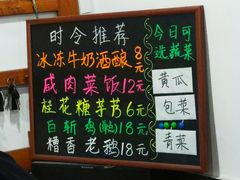 时令推荐
冰冻牛奶酒酿8元
咸肉菜饭12元
桂花糖芋艿6元
白斩鸡(鸭)18元
糟香老鹅18元
今日可
选蔬菜
黄瓜
包菜
青菜